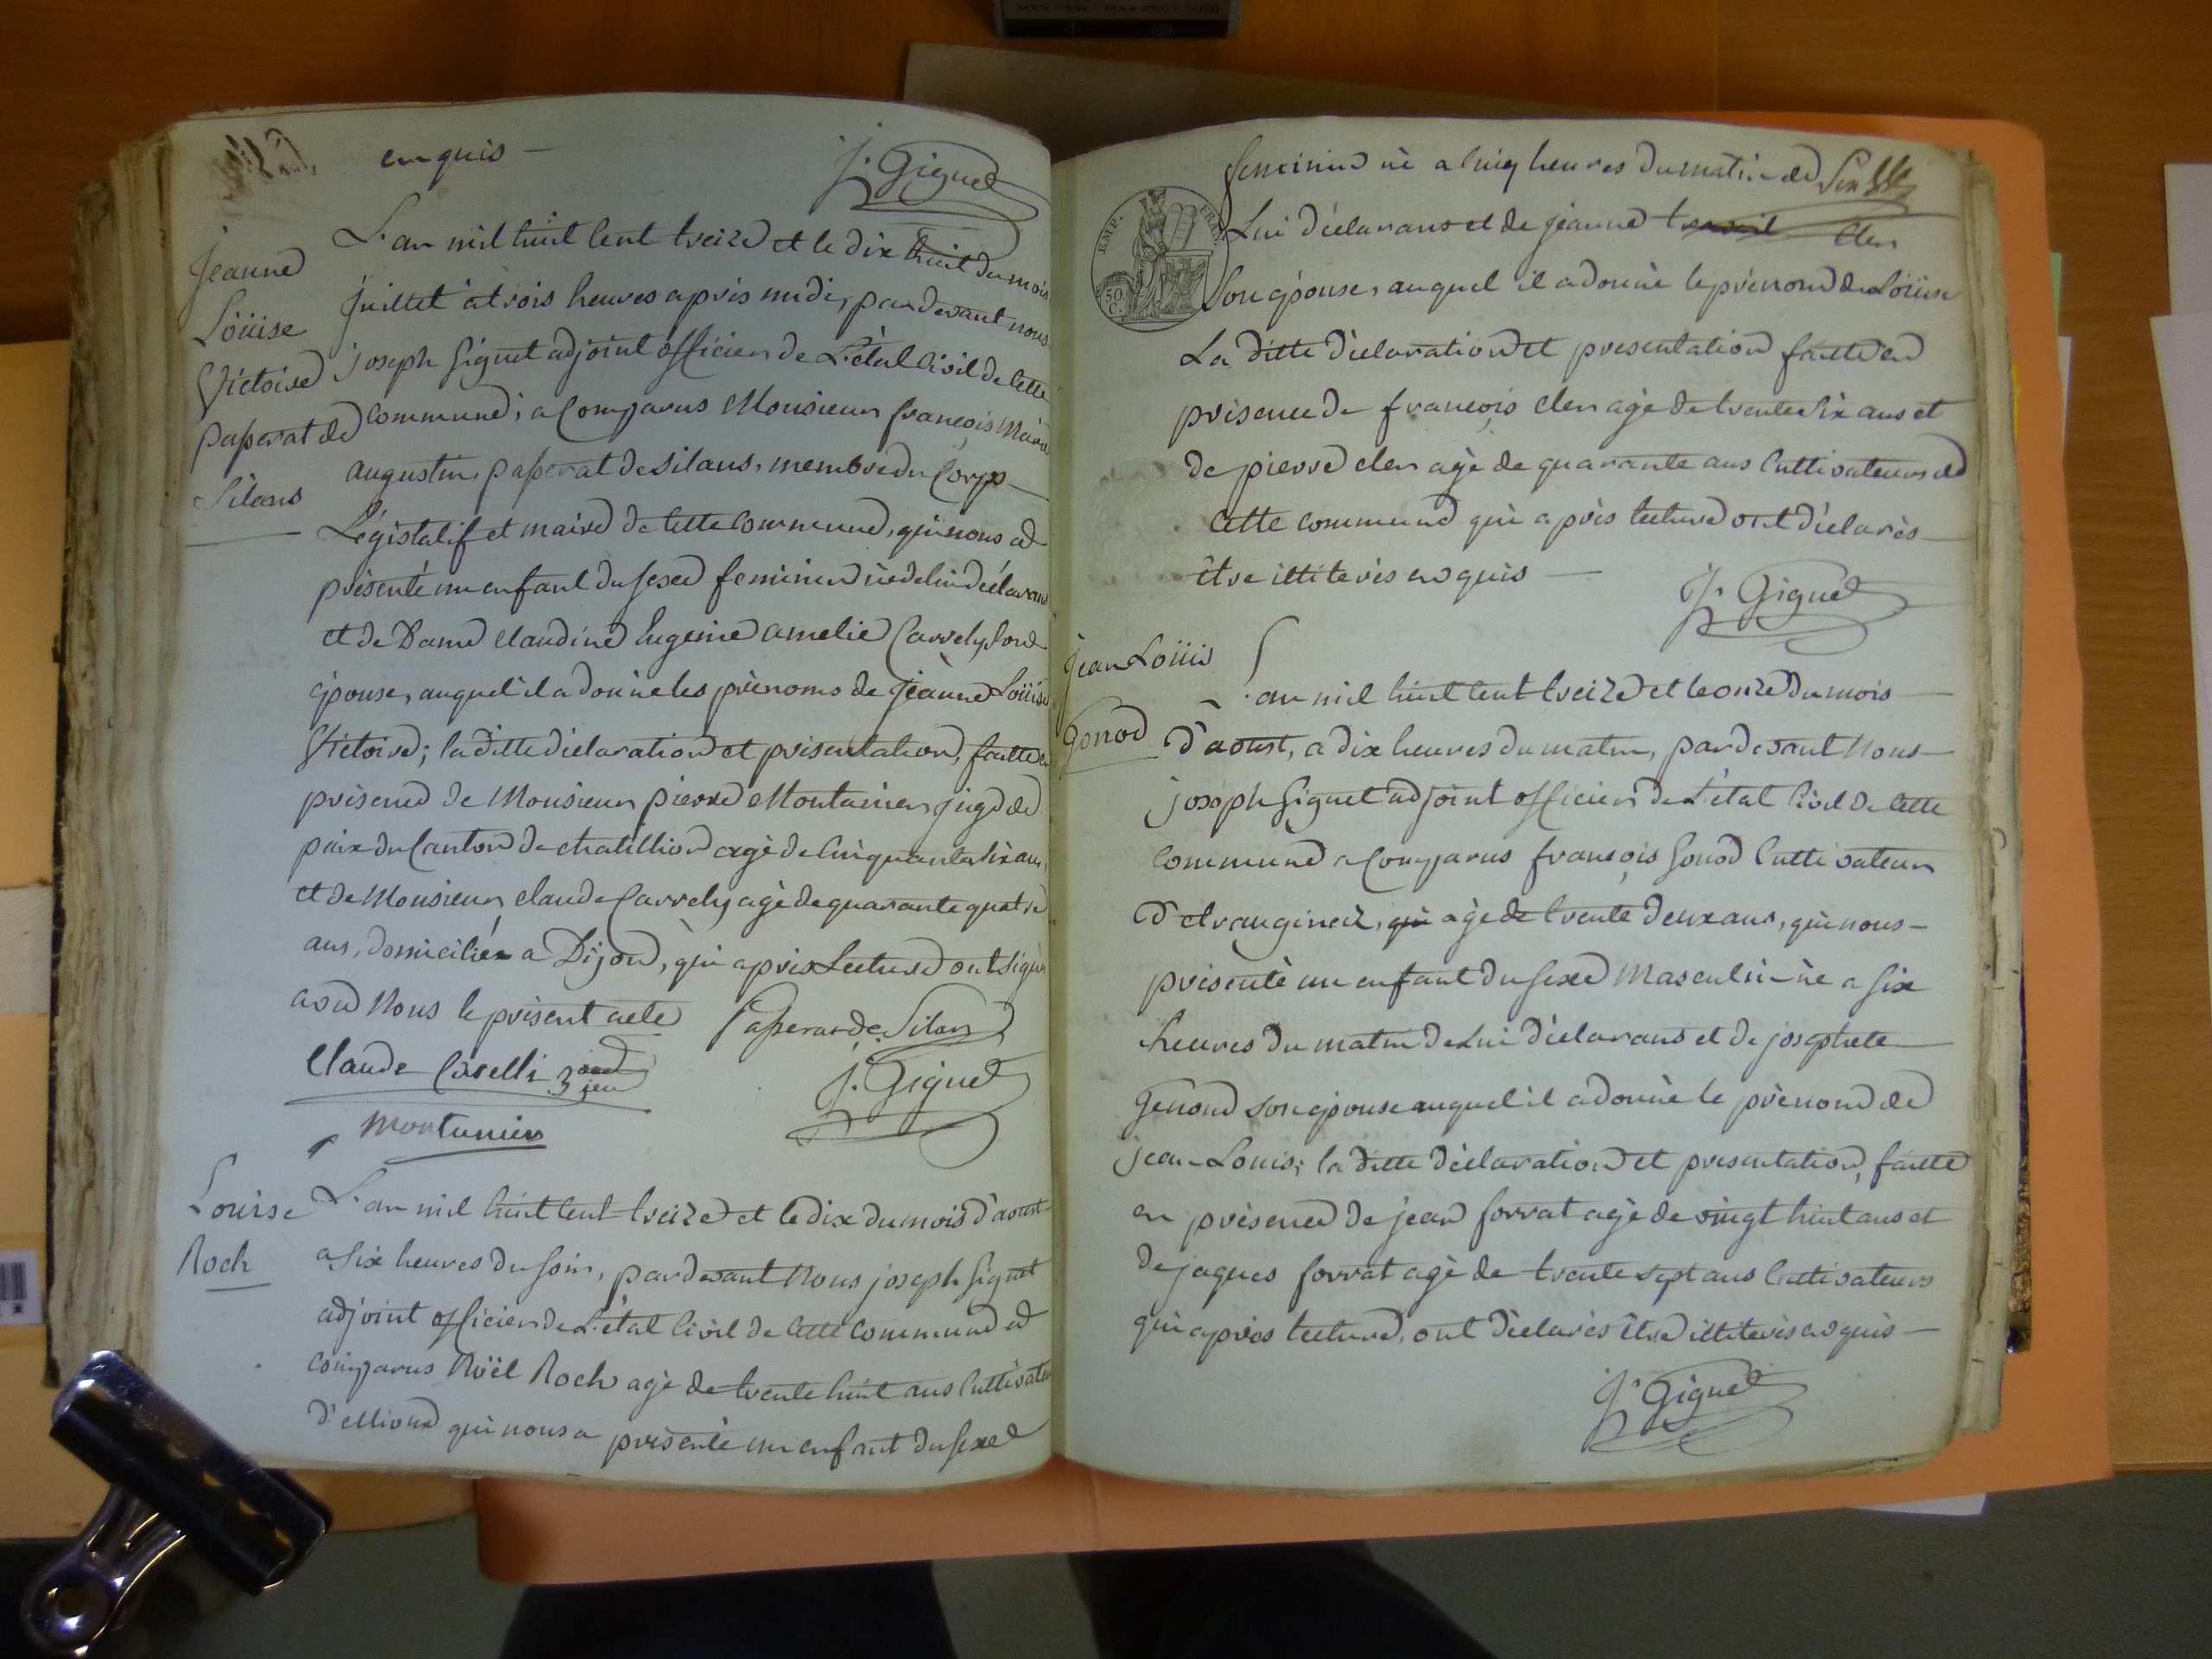 enquis —
J. Giguet
Jeanne
Löüise
Victoire
passerat de
Silans
L'an mil huit cent treize et le dix huit du mois
juillet à trois heures après midi, pardevant nous
joseph Giguet adjoint officier de L'état Civil de Cette
commune; a Comparus Monsieur françois Marie
augustin passerat de silans, membre du Corps
Législatif et maire de Cette Commune, qui nous a
présenté un enfant du sexe feminin né de lui déclarans
et de Dame claudine Eugenie amelie Carrely son
épouse, auquel il a donné les prénoms de jeanne Löüise
Victoire; la ditte déclaration et présentation, faitte en
présence de Monsieur pierre Montanier juge de
paix du Canton de chatillion agé de Cinquante six ans,
et de Monsieur claude Carrely agé de quarante quatre
ans, domiciliés a Dijon, qui après Lecture ont signé
avec Nous le présent acte
Passerat de Silans
Claude Carelli
J. Giguet
Montanier
Louise
Roch
L'an mil huit cent treize et le dix du mois d'aoust
a six heures du soir, pardevant Nous joseph Giguet
adjoint officier de L'état Civil de Cette Commune a
comparus Nöël Roch agé de trente huit ans Cultivateur
qui nous a présenté un enfant du sexe
feminin né a Cinq heures du matin de
EMP. FRAN.
50 C.
Lui déclarans et de jeanne cler
Son épouse, auquel il a donné le prénom de Löüise
La ditte déclaration et présentation faitte en
présence de françois cler agé de trente six ans et
de pierre cler agé de quarante ans Cultivateurs de
Cette commune qui après lecture ont déclarés
être illiterés enquis —
J. Giguet
jean Löüis
Gonod
L'an mil huit cent treize et le onze du mois
d'aoust, a dix heures du matin, pardevant Nous
joseph Giguet adjoint officier de L'état Civil de Cette
commune a Comparus françois Gonod Cultivateur
d'etranginaz, qui agé de trente deux ans, qui nous
présenté un enfant du sexe Masculin né a six
heures du matin de Lui déclarans et de josephete
Genond son épouse auquel il a donné le prénom de
jean Louis; la ditte déclaration et présentation, faitte
en présence de jean forrat agé de vingt huit ans et
de jaques forrat agé de trente sept ans Cultivateurs
qui après lecture, ont déclarés être illiterés enquis —
J. Giguet